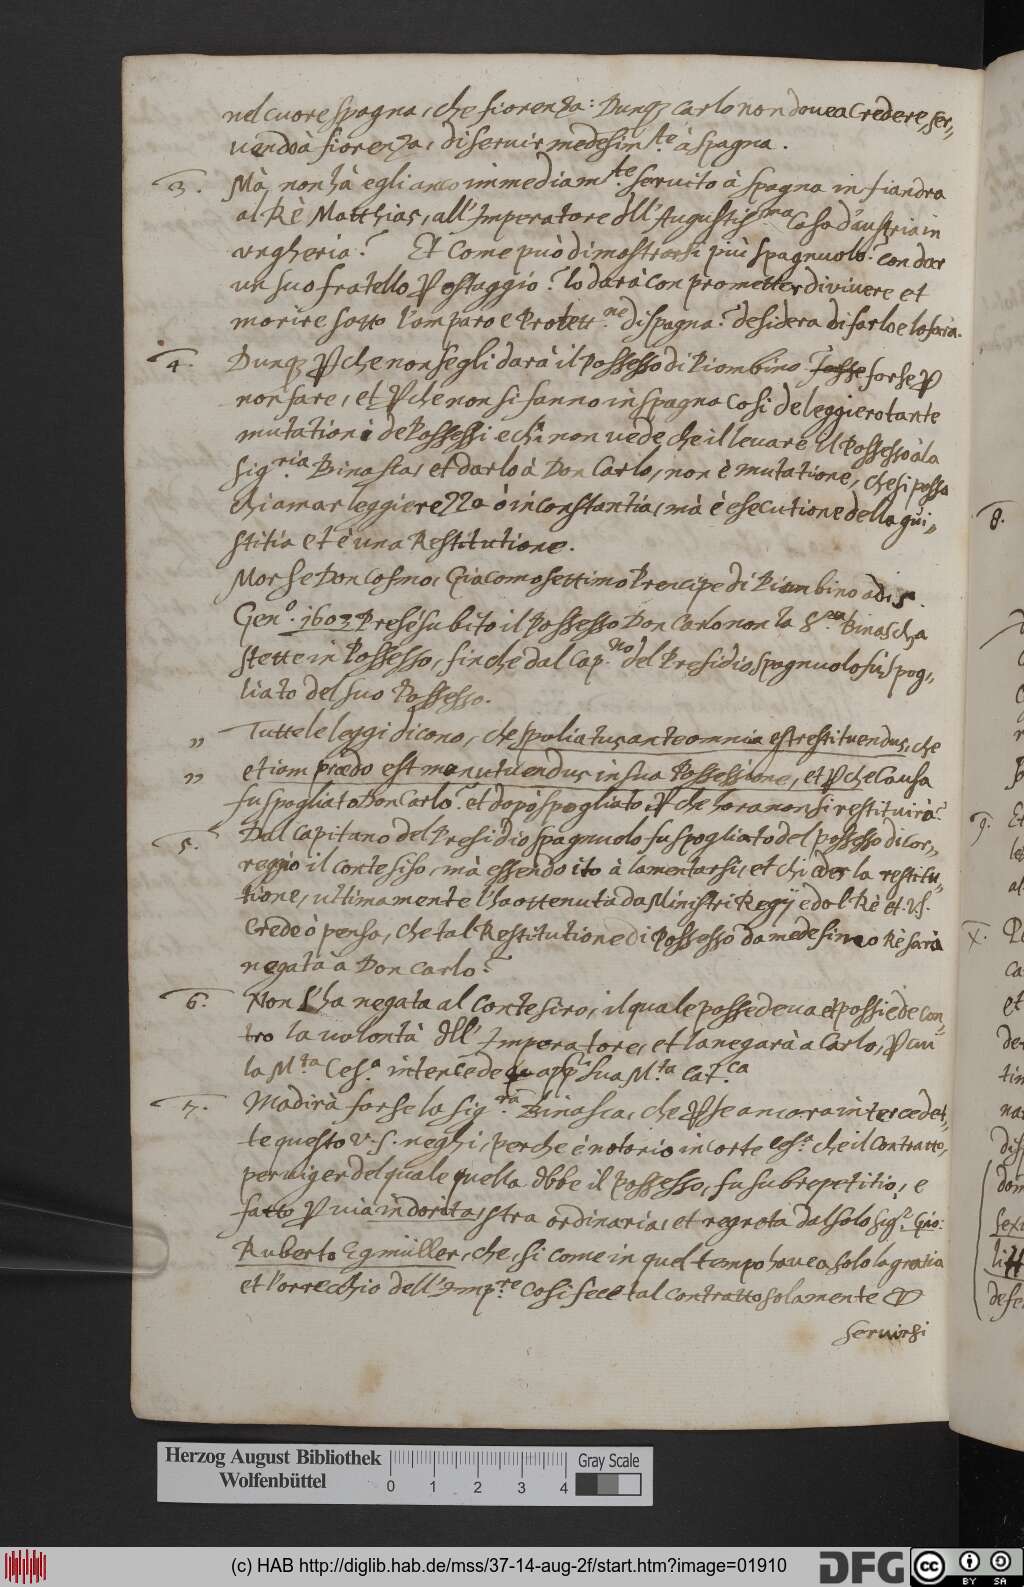 nel cuore spagna, che fiorenza: Dunq; Carlo non douea credere, ser-,
uendo à fiorenza, di seruir medesim.te à spagna.
3. Mà, non hà egli anco immediam.te seruito à spagna in fiandra
al Rè Matthias, all'Imperatore dll'Augustis.ma Casa d'austria in
vngheria? Et Come può dimostrarsi più spagnuolo? con dar
un suo fratello P ostaggio? lo darà con prometter di viuere et
morire sotto l'amparo e Protett.ne di spagna? desidera di farlo e lo farà.
4. Dunq; P che non se gli darà il Possesso di Piombino? fosse forse P
non fare, et P che non si fanno in spagna Cosi de leggiero tante
mutationi de Possessi e chi non uede, che il leuare il Possesso à la
sig.ria Binasca, et darlo à Don Carlo, non è mutatione, che si possa
chiamar leggierezza ò inconstantia, mà è esecutione della giu-,
stitia et è una Restitutione.
Morse Don Cosmo, Giacomo settimo Prencipe di Piombino adi 5.
Gen.o 1603 Prese subito il Possesso Don Carlo non la S.ra Binascha
stette in Possesso, sin che dal Cap.no del Presidio spagnuolo fù spog-,
liato del suo Possesso.
" Tutte le leggi dicono, che spoliatus ante omnia est restituendus, che
" etiam prædo est manutuendus in sua Possessione, et P che Causa
fu spogliato Don Carlo? et dopò spogliato P che hora non si restituirà?
5. Dal Capitano del Presidio spagnuolo fu spogliato del possesso di Cor-,
reggio il Cortesiso, mà essendo ito à lamentarsi, et chieder la restitu-,
tione, ultimamente l'ha ottenuta da Ministri Regij e dal Rè et. V.S.
Crede ò pensa, che tal Restitutione di Possesso da medesimo Rè sarà
negata à Don Carlo?
6. Non l'ha negata al Cortesiro, il quale possedeua et possiede con-,
tro la uolontà dll' Imperatore, et la negarà a Carlo, P cui
la M.ta Ces.a intercede app. sua M.ta Cat.ca
7. Ma dirà forse la sig.ra Binasca, che P se ancora intercedet-,
te questo V.S. neghi, perche è notorio in Corte Ces.a che il Contratto,
per uiger del quale quella dbbe il Possesso, fu subrepetitio, e
fatto P uia indorita, stra ordinaria, et regreta dal solo sig.r Gio:
Ruberto Egmüller, che, si come in quel tempo hauea solo la gratia
et l'orrecchio dell'Imp.re Cosi fece tal Contratto solamente P
seruirsi
8.
9. Et
al
X.
ca
et
de
tin
na
dis
dom
sex
litt
defe
Herzog August Bibliothek
Wolfenbüttel
0 1 2 3 4
Gray Scale
(c) HAB http://diglib.hab.de/mss/37-14-aug-2f/start.htm?image=01910
DFG
cc BY SA